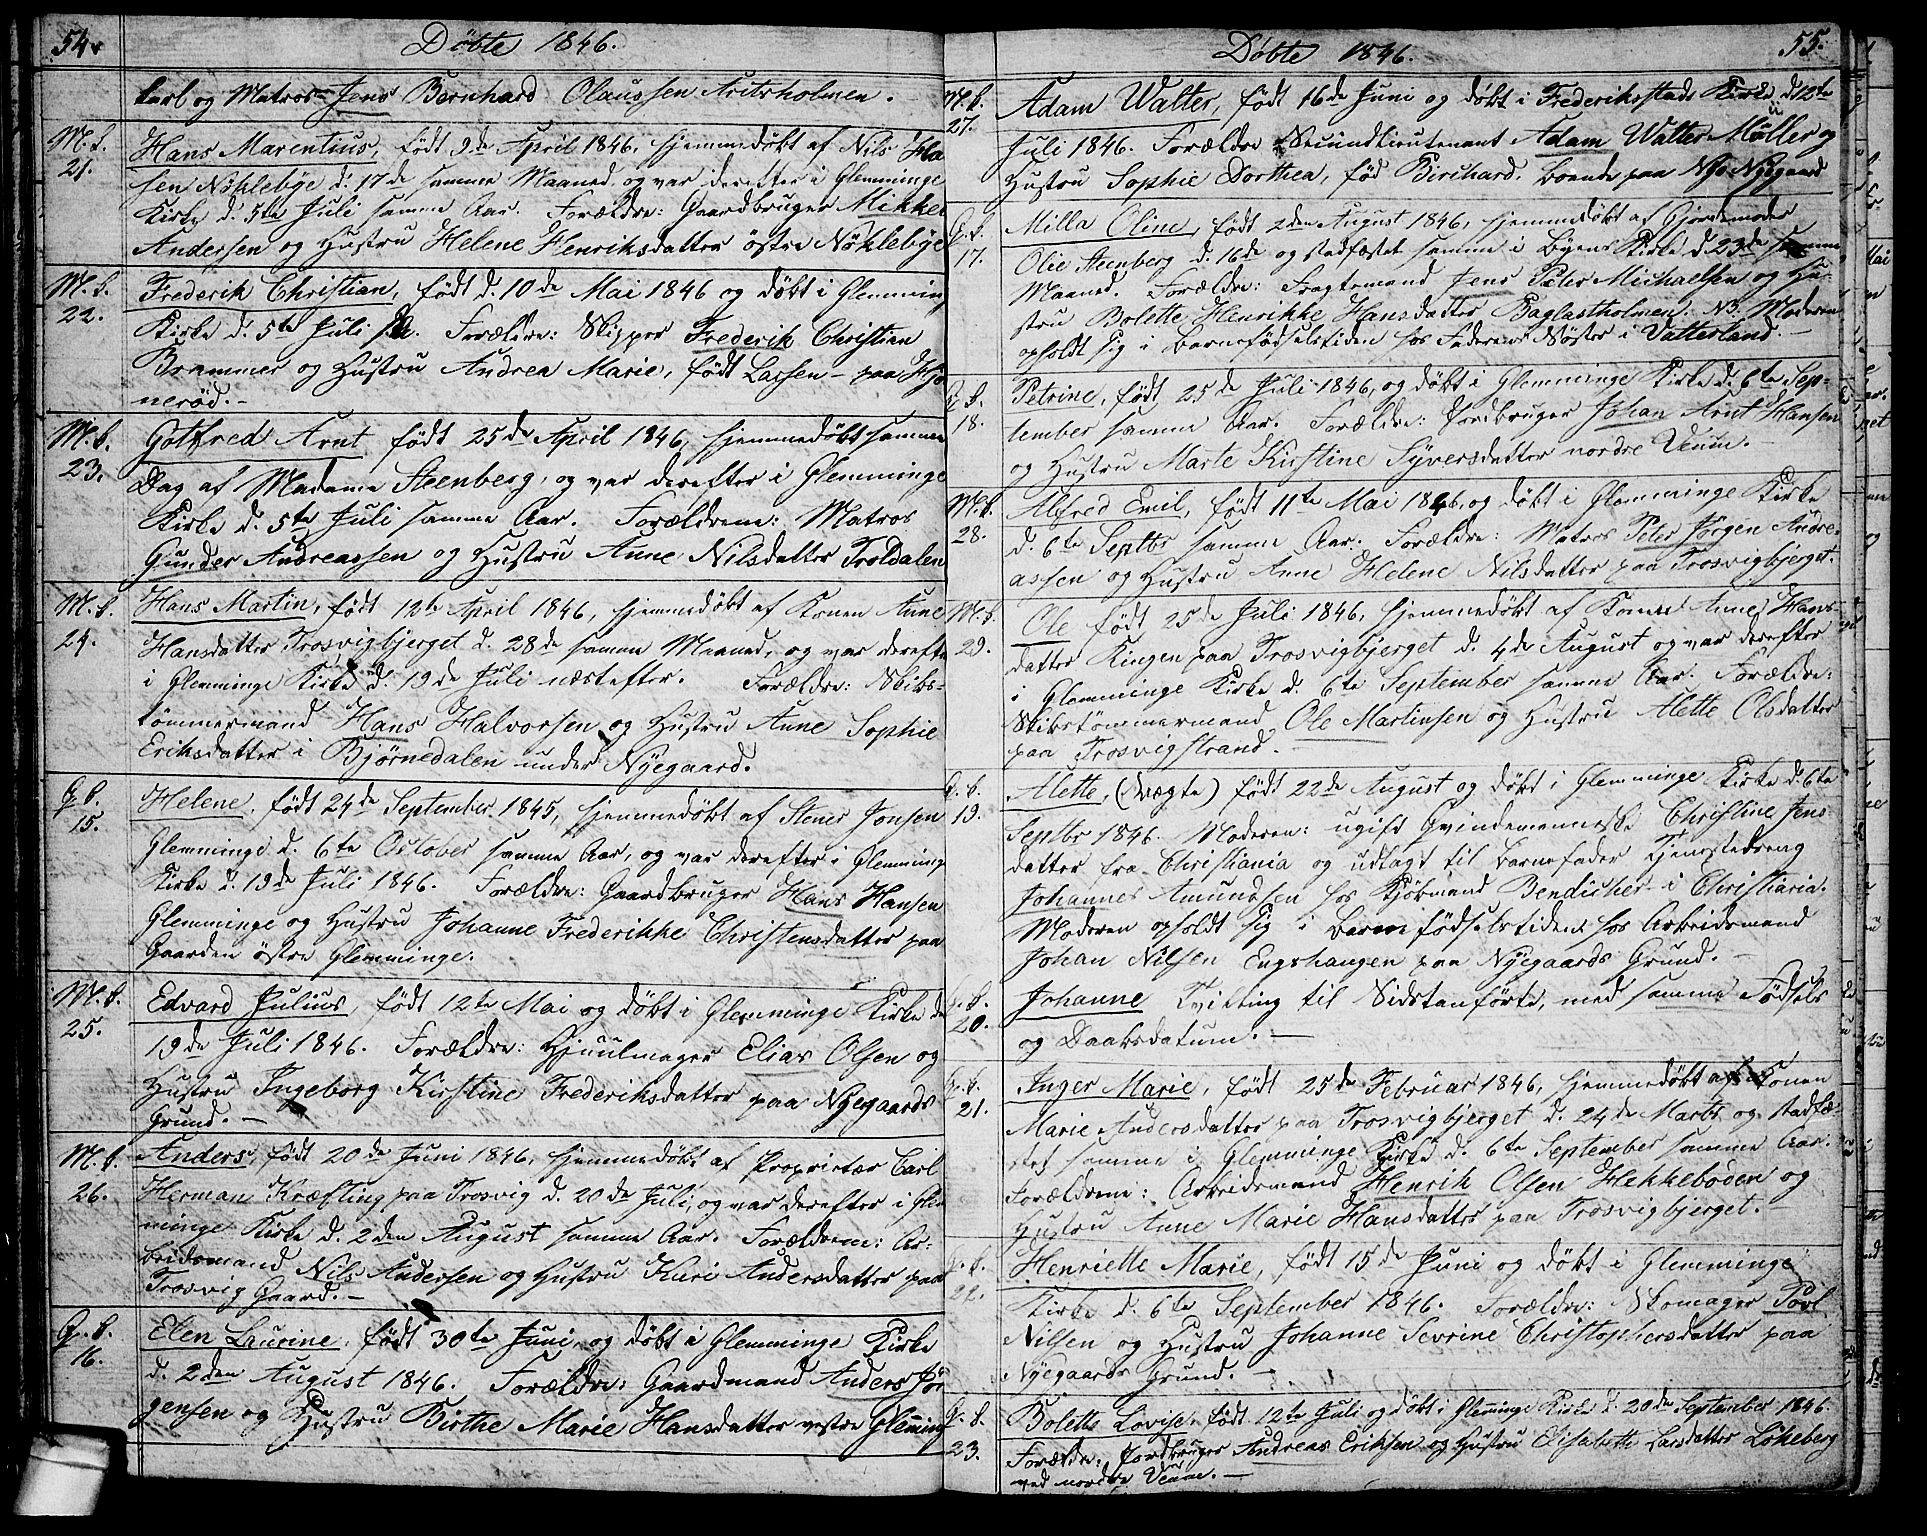 54.
Döbte 1846.
karl og Matros Jens Bernhard Olaussen
M. k. 21.
Hans Marentius, født 9de April 1846, hjemmedøbt af Nils Han-
sen Nöklebye d. 17de samme Maaned og var derefter i Glemminge
Kirke d. 5te Juli samme Aar. Forældre: Gaardbruger Mikkel
Andersen og Hustru Helene Henriksdatter östre Nöklebye
M. k. 22.
Frederik Christian, født d. 10de Mai 1846 og døbt i Glemming
Kirke d. 5te Juli s. A. Forældre: Skipper Frederik Christian
Brammer og Hustru Andrea Marie, født Lassen – paa
neröd. –
M. k. 23.
Gotfred Arnt født 25de April 1846, hjemmedøbt samme
Dag af Madame Steenberg, og var derefter i Glemminge
Kirke d. 5te Juli samme Aar. Forældrene: Matros
Gunder Andreassen og Hustru Anne Nilsdatter Troldalen
M. k. 24.
Hans Martin, født 12te April 1846, hjemmedøbt af Konen Anne
Hansdatter Trosvigbjerget d. 28de samme Maaned, og var derefter
i Glemminge Kirke d. 19de Juli næstefter. Forældre: Skibs-
tömmermand Hans Halvorsen og Hustru Anne Sophie
Eriksdatter i Bjørnedalen under Nyegaard.
G. k. 15.
Helene, født 24de September 1845, hjemmedøbt af Stener Jonsen
Glemminge d. 6te October samme Aar, og var derefter i Glemminge
Kirke d. 19de Juli 1846. Forældre: Gaardbruger Hans Hansen
Glemminge og Hustru Johanne Frederikke Christensdatter paa
Gaarden östre Glemminge.
M. k. 25.
Edvard Julius, født 12te Mai og døbt i Glemminge Kirke den
19de Juli 1846. Forældre: Hjuulmager Elias Olsen og
Hustru Ingeborg Kirstine Frederiksdatter paa Nyegaards
Grund. –
M. k. 26.
Anders, født 20de Juni 1846, hjemmedøbt af Proprietær Carl
Herman Kræfting paa Trosvig d. 20de Juli, og var derefter i Glem-
minge Kirke d. 2den August samme Aar. Forældrene: Ar-
beidsmand Nils Andersen og Hustru Kari Andersdatter paa
Trosvig Gaard. –
G. k. 16.
Elen Laurine, født 30te Juni og døbt i Glemminge Kirke
d. 2den August 1846. Forældre: Gaardmand Anders Jör-
gensen og Hustru Birthe Marie Hansdatter vestre Glemming
55.
Döbte 1846.
M. k. 27.
Adam Walter, født 16de Juni og døbt i Frederiksstads Kirke d. 12te
Juli 1846. Forældre Secundlieutenant Adam Walter Müller og
Hustru Sophie Dorthea, fød Birchard, boende paa Nygaard
G. k. 17.
Milla Oline, født 2den August 1846, hjemmedøbt af Gjordemoder
Olie Steenberg d. 16de og stadfæstet samme i Byens Kirke d. 23de samme
Maaned. Forældre: Fragtemand Jens Peter Michaelsen og Hu-
stru Bolette Henrikke Hansdatter Baglastholmen. NB. Moderen
opholdt sig i Barnefødselstiden hos Faderens Søster i Vatterland. –
G. k. 18.
Petrine, født 25de Juli 1846, og døbt i Glemminge Kirke d. 6te Sep-
tember samme Aar. Forældre: Jordbruger Johan Arnt Hansen
og Hustru Marte Kirstine Syversdatter nordre Veum. –
M. k. 28.
Alfred Emil, født 11te Mai 1846, og døbt i Glemminge Kirke
d. 6te Septbr samme Aar. Forældre: Matros Peter Jørgen Andre-
assen og Hustru Anne Helene Nilsdatter paa Trosvigbjerget.
M. k. 29.
Ole født 25de Juli 1846, hjemmedøbt af Konen Anne Hans-
datter Ringen paa Trosvigbjerget d. 4de August og var derefter
i Glemminge Kirke d. 6te September samme Aar. Forældre:
Skibstömmermand Ole Martinsen og Hustru Alette Olsdatter
paa Trosvigstrand. –
G. k. 19.
Alette, (Uægte) født 22de August og døbt i Glemminge Kirke d. 6te
Septbr 1846. Moderen: ugift Qvindemenneske Christine Jens-
datter fra Christiania og udlagt til Barnefader Tjenestedreng
Johannes Amundsen hos Kjøbmand Bendicher i Christiania.
Moderen opholdt sig i Barnefødselstiden hos Arbeidsmand
Johan Nilsen Engshaugen paa Nyegaards Grund. –
G. k. 20.
Johanne Tvilling til Sidstanførte, med samme Fødsels
og Daabsdatum. –
G. k. 21.
Inger Marie, født 25de Februar 1846, hjemmedøbt af Konen
Marie Andersdatter paa Trosvigbjerget d. 24de Marts og stadfæ-
stet samme i Glemminge Kirke d. 6te September samme Aar.
Forældrene: Arbeidsmand Henrik Olsen Hekkeboden og
Hustru Anne Marie Hansdatter paa Trosvigbjerget. –
G. k. 22.
Henriette Marie, født 15de Juni og døbt i Glemminge
Kirke d. 6te September 1846. Forældre: Skomager Povl
Nilsen og Hustru Johanne Sevrine Christophersdatter paa
Nyegaards Grund. –
G. k. 23.
Bolette Lovise, født 12te Juli og døbt i Glemminge Kirke d. 20de September 1846
Forældre: Jordbruger Andreas Eriksen og Hustru Elisabeth Larsdatter Løkeberg
ved nordre Veum. –